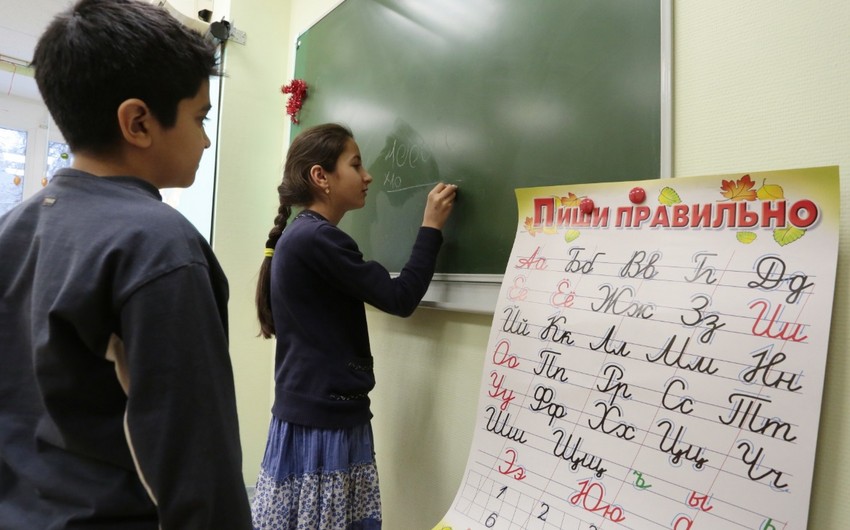 1000
Пиши правильно
Аа Бб Вв Гг Дд
Ее Ёё Жж Зз Ии
Йй Кк Лл Мм Нн
Оо Пп Рр Сс Тт
Уу Фф Хх Цц Чч
Шш Щщ ъ ы ь
Ээ Юю Яя
1 2
6